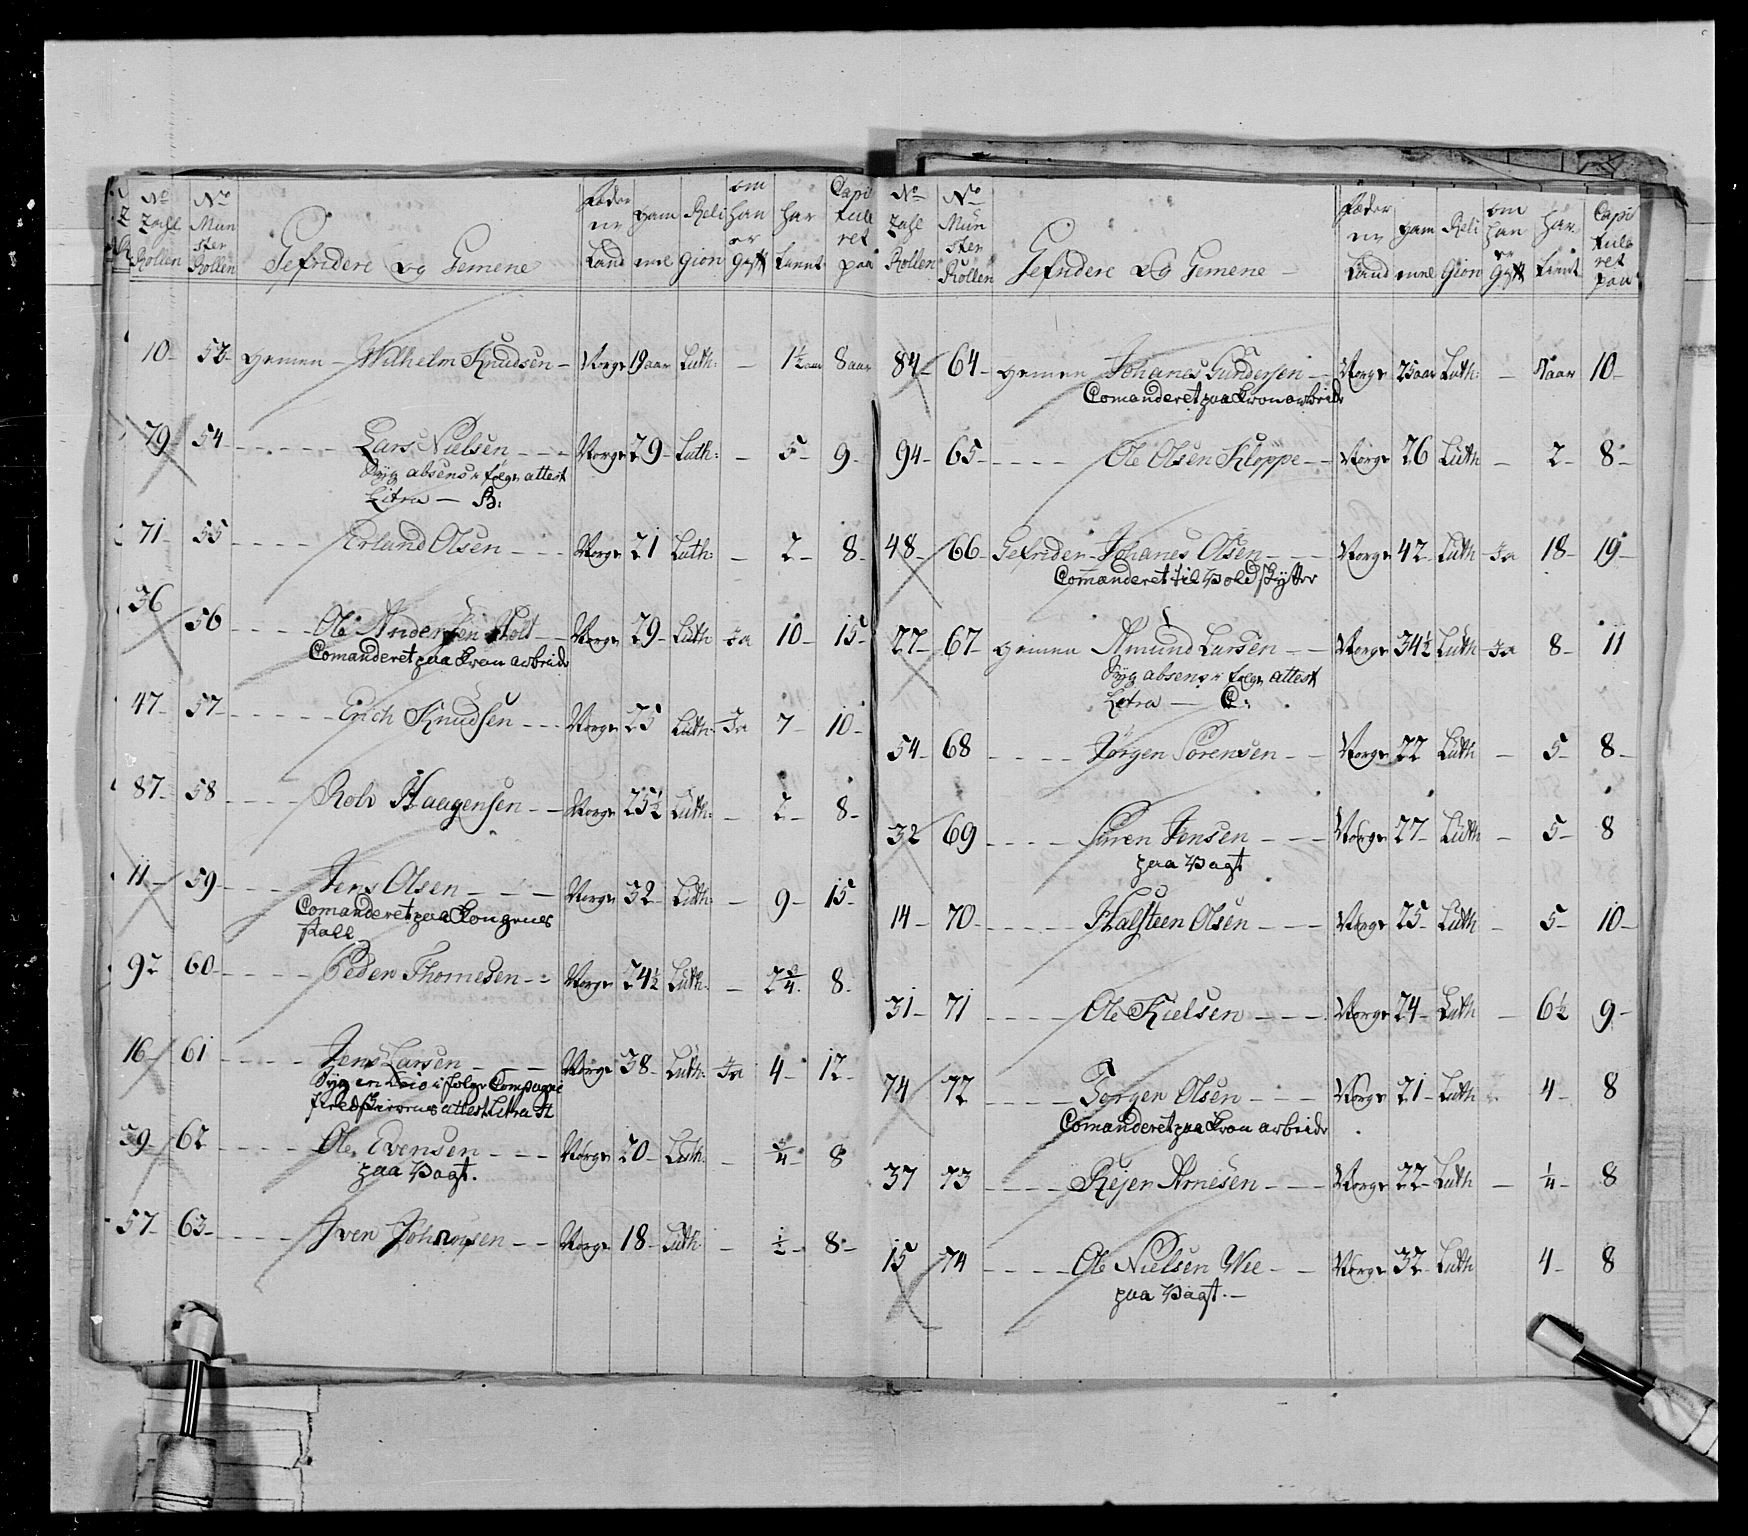 No Zahl Rollen | No Mun ster Rollen | Gefridere og Gemene | Føder ne Land | gam mel | Reli Gion | om han er Gift | har tient | Capi tule ret paa
10 - 53 - Gemen - Wilhelm Knudsen - Norge 19 aar Luth: - 1½ aar 8 aar
79 54 - Lars Nielsen - Norge 29 - Luth: - 5 - 9 -
Syg absens i følge attest
Litra - B:
71 - 55 - Erland Olsen - Norge 21 Luth: - 2 - 8 -
36 56 - Ole Andersen Holt - Norge 29 - Luth Ja 10 - 15 -
Comanderet paa Kron arbeide
47 - 57 - Erich Knudsen - Norge 25 Luth: Ja 7 - 10 -
87 - 58 - Rolv Haagensen - Norge 25½ Luth: - 2 - 8 -
11 - 59 - Jens Olsen - Norge 32 - Luth: - 9 - 15 -
Comanderet paa Kongenes
stall
92 60 - Peder Thomesen - Norge 24½ Luth: - 2¾ 8 -
16 61 - Jens Larsen - Norge 38 - Luth: Ja 4 - 12 -
Syg en i følge Compagni
attest Litra A
39 62 - Ole Evensen - Norge 20 - Luth: - ¾ - 8
paa Vagt.
57 - 63 - Iven Johnsen - Norge 18 - Luth - ½ - 8 -
No Zahl Rollen | No Mun ster Rollen | Gefridere og Gemene - | Føder ne Land | gam mel | Reli Gion | om han er Gift | har tient | Capi tule ret paa
84 - 64 - Gemen Johanes Gundersen - Norge 23 aar Luth: - aar 10 -
Comanderet paa Kron arbeide
94 - 65 - Ole Olsen Kloppe - Norge 26 Luth - 2 - 8 -
48 - 66 - Gefrider Johanes Olsen - Norge 42 - Luth Ja 18 - 19 -
Comanderet til Vold skytter
27 - 67 - Gemen Amund Larsen - Norge 34½ Luth Ja 8 - 11
Syg absens i følge attest
Litra - C:
54 - 68 - Jørgen Sørensen - Norge 22 Luth - 5 - 8 -
32 69 - Søren Jensen - Norge 27 - Luth - 5 - 8
paa Vagt
14 - 70 - Halsteen Olsen - Norge 25 - Luth - 5 - 10 -
31 - 71 - Ole Kielsen - Norge 24 - Luth - 6½ 9 -
74 72 - Torgen Olsen - Norge 21 - Luth 4 - 8
Comanderet paa Kron arbeide
37 73 - Rejer Arnesen - Norge 22 - Luth - ¼ - 8
15 74 - Ole Nielsen Wee - Norge 32 - Luth 4 - 8
paa Vagt. -